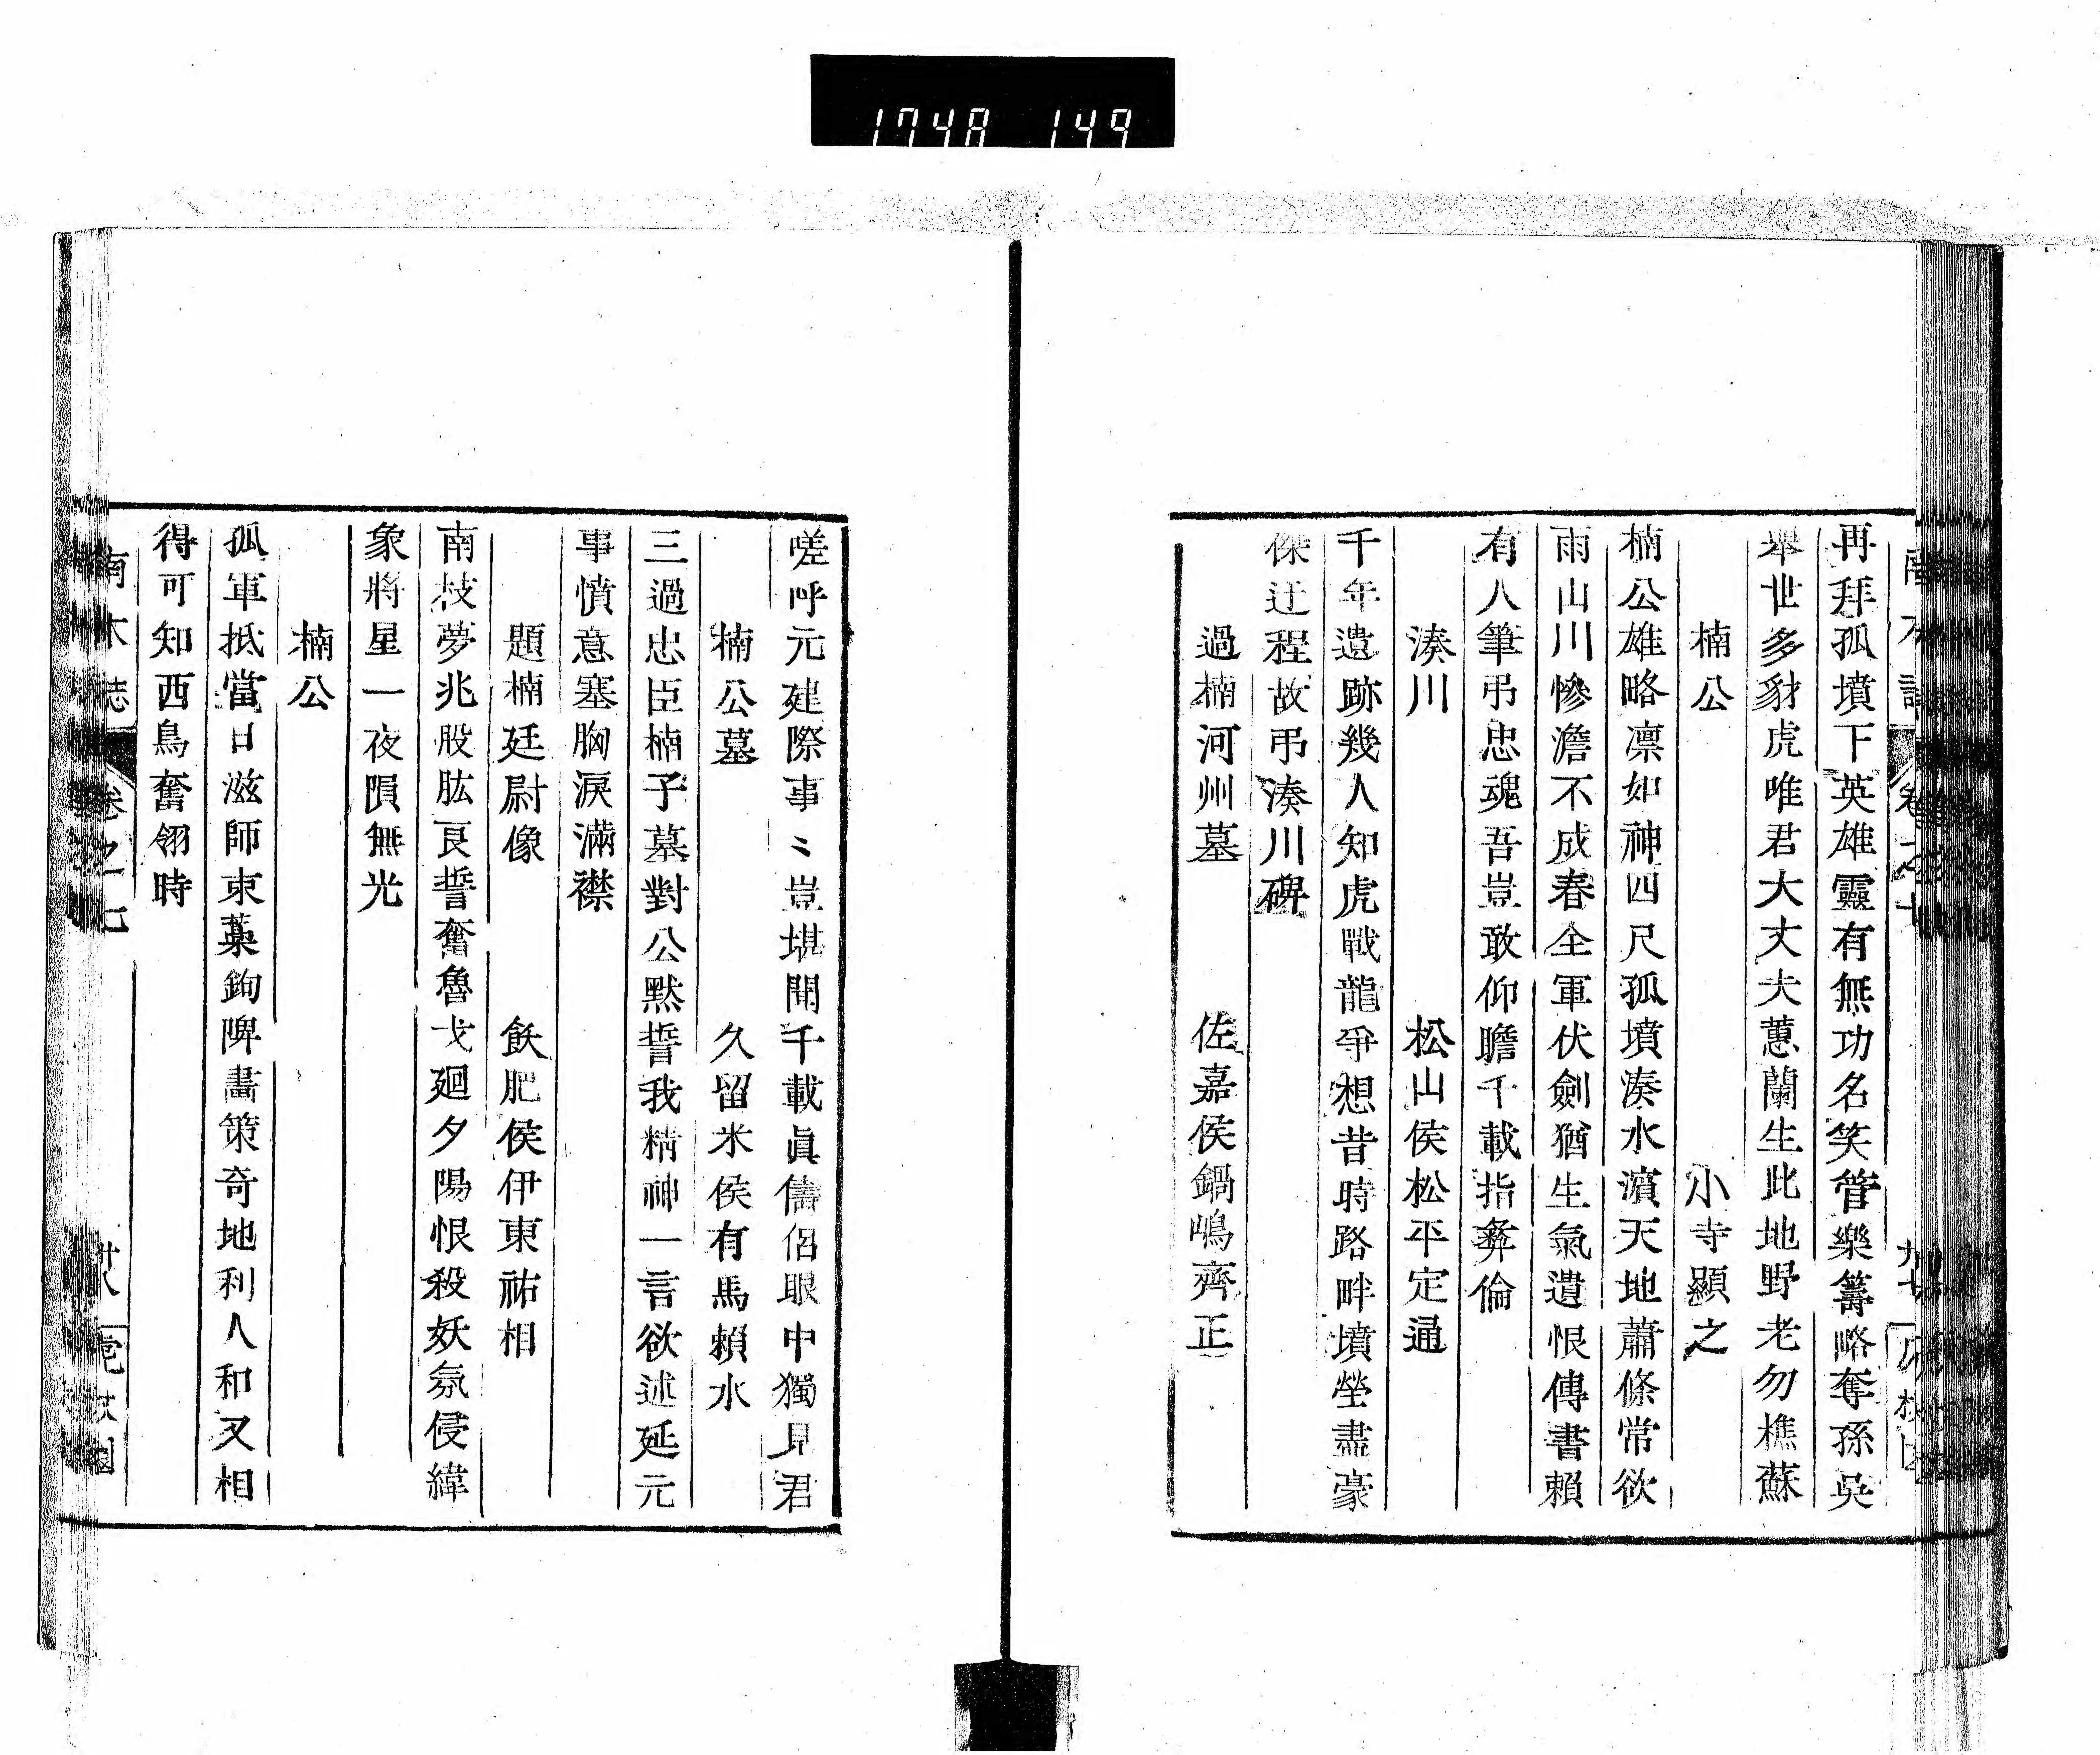 1748 149
再拜孤墳下英雄靈有無功名笑管樂籌略奪孫吳
舉世多豺虎唯君大丈夫蕙蘭生此地野老勿樵蘇
楠公 小寺顯之
楠公雄略凛如神四尺孤墳湊水濵天地蕭條常欲
雨山川慘澹不成春全軍伏劍猶生氣遺恨傳書賴
有人筆弔忠魂吾豈敢仰瞻千載指彜倫
湊川 松山侯松平定通
千年遺跡幾人知虎戰龍爭想昔時路畔墳塋盡豪
傑迂程故弔湊川碑
過楠河州墓 佐嘉侯鍋嶋齊正
嗟呼元建際事〻豈堪聞千載眞儔侶眼中獨見君
楠公墓 久留米侯有馬賴永
三過忠臣楠子墓對公默誓我精神一言欲述延元
事憤意塞胸淚滿襟
題楠廷尉像 飫肥侯伊東祐相
南枝夢兆股肱良誓奮魯戈廻夕陽恨殺妖氛侵緯
象將星一夜隕無光
楠公
孤軍抵當日滋師束藁鉤陴畵策奇地利人和又相
得可知西鳥奮翎時
南木誌 卷之七